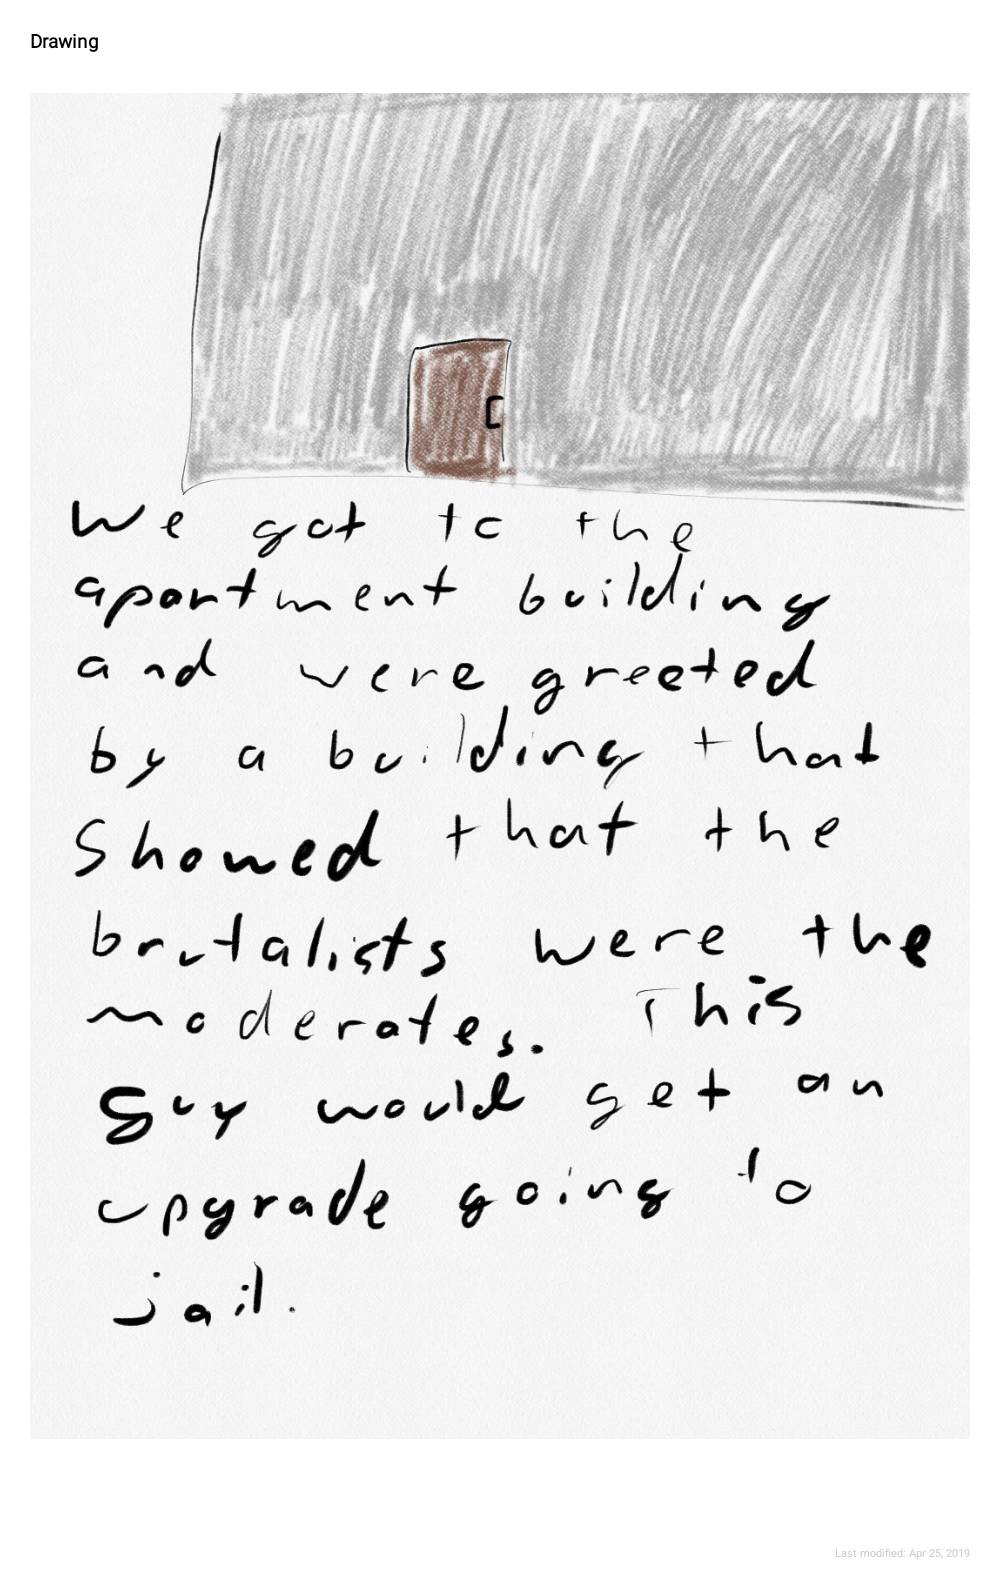 Drawing
We got to the
apartment building
and were greeted
by a building that
showed that the
brutalists were the
moderates. This
guy would get an
upgrade going to
jail.
Last modified: Apr 25, 2019